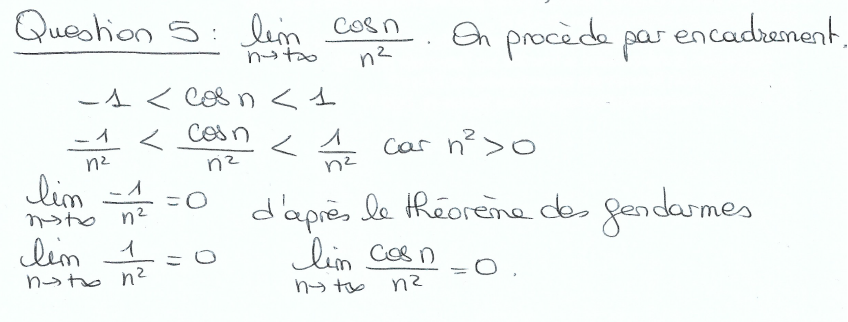 Question 5 : lim n→+∞ cos n / n². On procède par encadrement.
-1 < cos n < 1
-1/n² < cos n / n² < 1/n² car n² > 0
lim n→+∞ -1/n² = 0 d'après le théorème des gendarmes
lim n→+∞ 1/n² = 0 lim n→+∞ cos n / n² = 0.